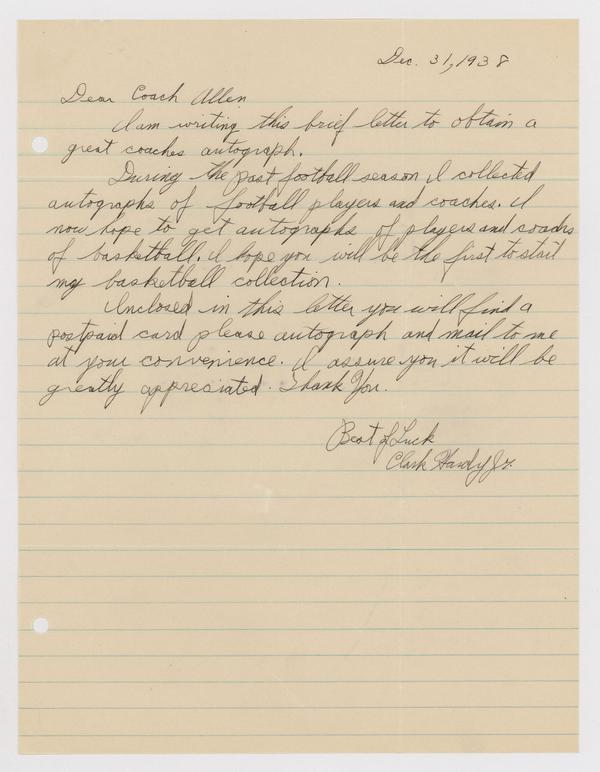 Dec. 31, 1938
Dear Coach Allen
I am writing this brief letter to obtain a
great coaches autograph.
During the past football season I collected
autographs of football players and coaches. I
now hope to get autographs of players and coachs
of basketball. I hope you will be the first to start
my basketball collection.
Inclosed in this letter you will find a
postpaid card please autograph and mail to me
at your convenience. I assure you it will be
greatly appreciated. Thank You.
Best of Luck
Clark Hardy Jr.